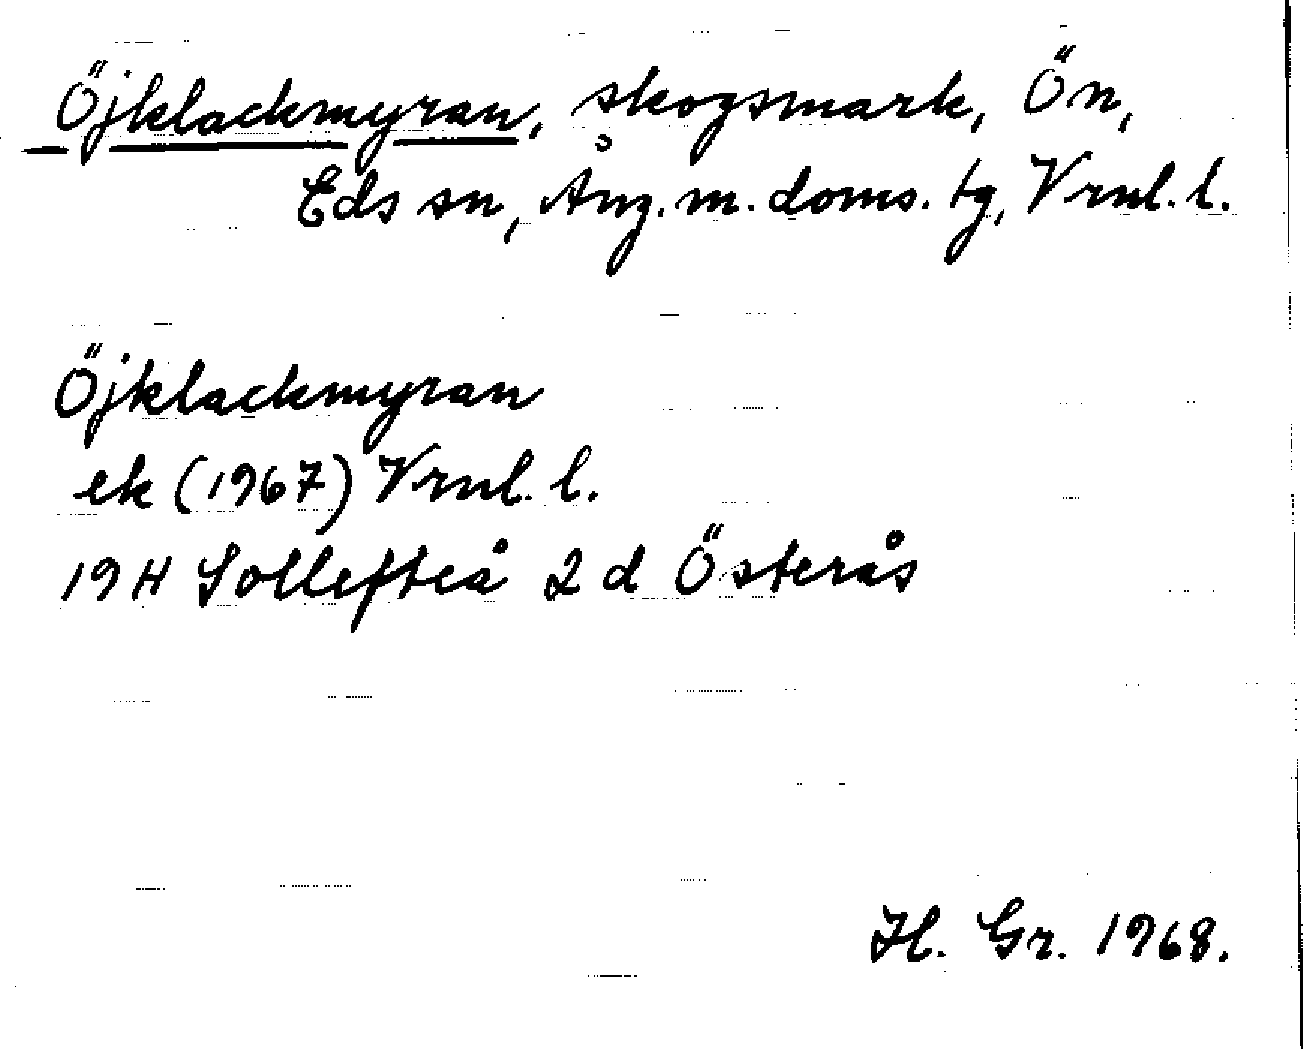 Öjklackmyran, skogsmark, Ön,
Eds sn, Ång. m. doms. tg, Vrnl. l.
Öjklackmyran
ek (1967) Vrnl. l.
19 H Sollefteå 2 d Österås
H. Gr. 1968.